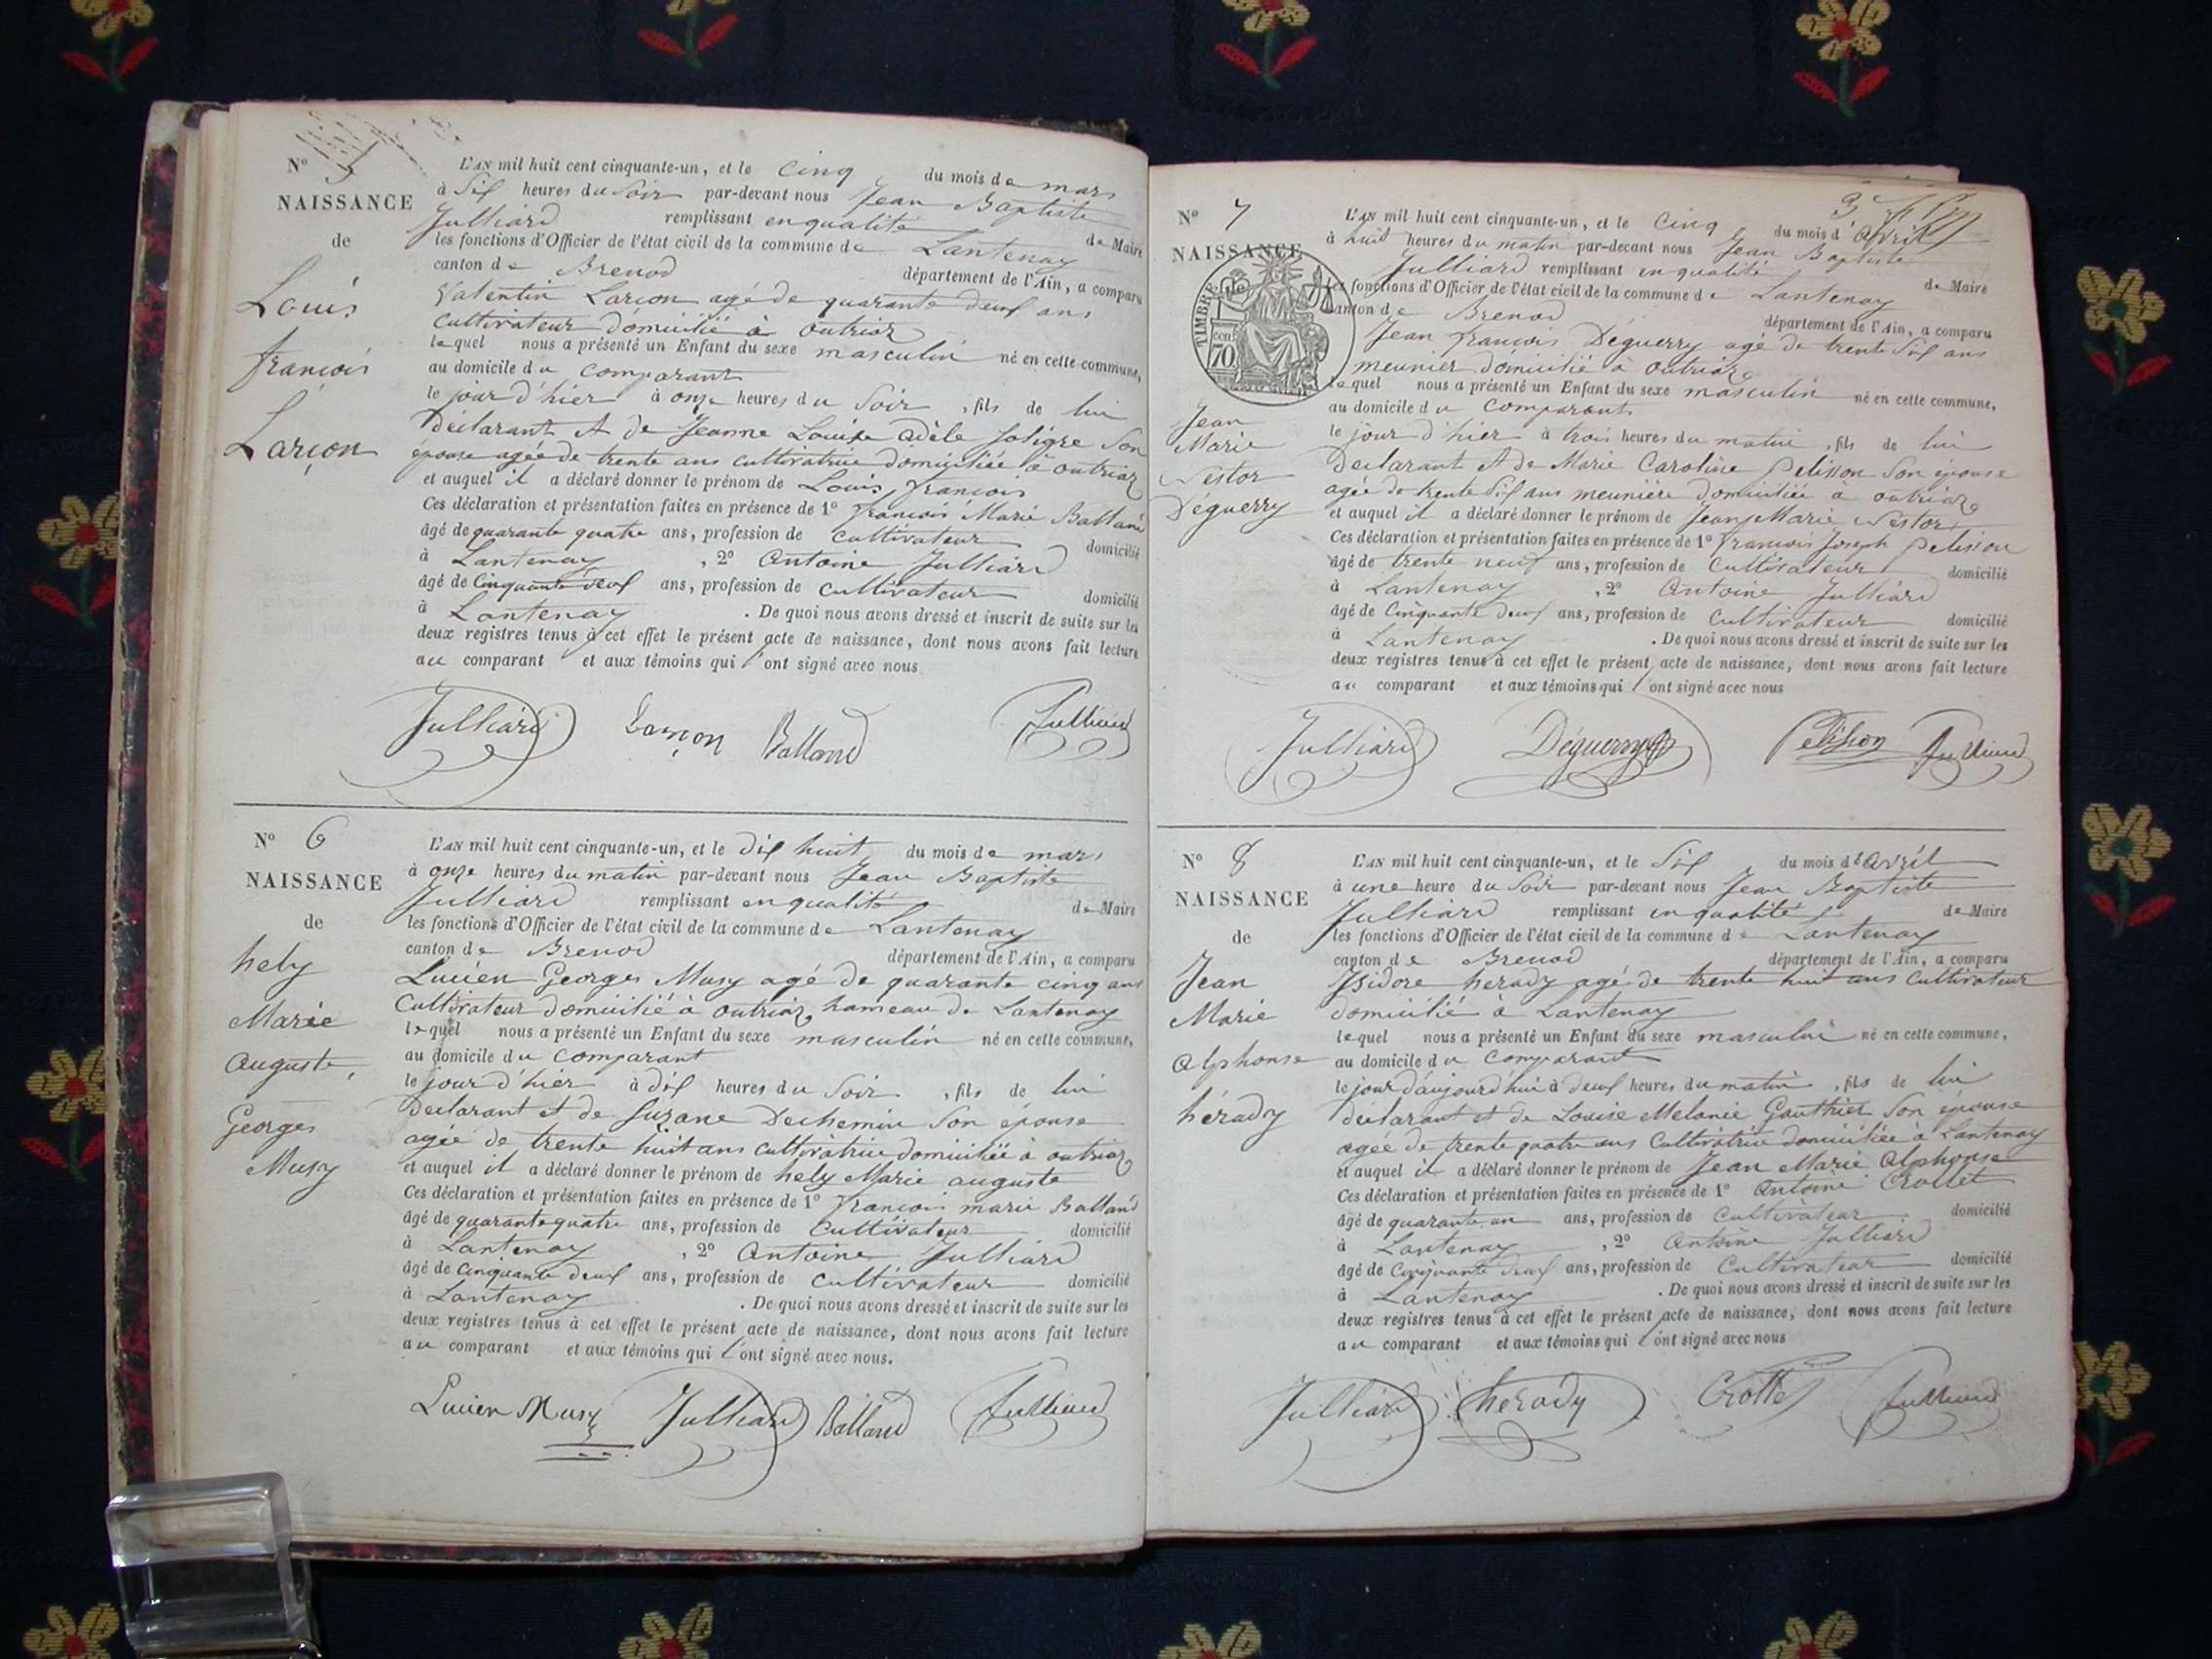 Nº 5
NAISSANCE
de
Louis
françois
Larçon
L'AN mil huit cent cinquante-un, et le cinq du mois de mars
à Six heures du Soir par-devant nous Jean Baptiste
Julliard remplissant en qualité de Maire
les fonctions d'Officier de l'état civil de la commune de Lantenay
canton de Brenod département de l'Ain, a comparu
Valentin Larçon agé de quarante deux ans
cultivateur domicilié à outriaz
lequel nous a présenté un Enfant du sexe masculin né en cette commune,
au domicile du comparant
le jour d'hier à onze heures du Soir, fils de lui
déclarant et de Jeanne Louise adèle son
épouse agée de trente ans cultivatrice domiciliée à outriaz
et auquel il a déclaré donner le prénom de Louis, françois
Ces déclaration et présentation faites en présence de 1º françois Marie Balland
âgé de quarante quatre ans, profession de cultivateur domicilié
à Lantenay, 2º Antoine Julliard
âgé de Cinquante deux ans, profession de cultivateur domicilié
à Lantenay. De quoi nous avons dressé et inscrit de suite sur les
deux registres tenus à cet effet le présent acte de naissance, dont nous avons fait lecture
au comparant et aux témoins qui ont signé avec nous
Julliard Larçon Balland Julliard
Nº 6
NAISSANCE
de
hely
Marie
auguste,
Georges
Musy
L'AN mil huit cent cinquante-un, et le dix huit du mois de mars
à onze heures du matin par-devant nous Jean Baptiste
Julliard remplissant en qualité de Maire
les fonctions d'Officier de l'état civil de la commune de Lantenay
canton de Brenod département de l'Ain, a comparu
Lucien Georges Musy agé de quarante cinq ans
Cultivateur domicilié à outriaz hameau de Lantenay
lequel nous a présenté un Enfant du sexe masculin né en cette commune,
au domicile du comparant
le jour d'hier à dix heures du Soir, fils de lui
Declarant et de Suzane Dechemin Son épouse
agée de trente huit ans cultivatrice domiciliée à outriaz
et auquel il a déclaré donner le prénom de hely Marie auguste
Ces déclaration et présentation faites en présence de 1º françois marie Balland
âgé de quarante quatre ans, profession de Cultivateur domicilié
à Lantenay, 2º Antoine Julliard
âgé de Cinquante deux ans, profession de Cultivateur domicilié
à Lantenay. De quoi nous avons dressé et inscrit de suite sur les
deux registres tenus à cet effet le présent acte de naissance, dont nous avons fait lecture
au comparant et aux témoins qui ont signé avec nous.
Lucien Musy Julliard Balland Julliard
3
Nº 7
NAISSANCE
TIMBRE
70
Jean
Marie
Nestor
Déguerry
L'AN mil huit cent cinquante-un, et le Cinq du mois d'avril
à huit heures du matin par-devant nous Jean Baptiste
Julliard remplissant en qualité de Maire
les fonctions d'Officier de l'état civil de la commune de Lantenay
canton de Brenod département de l'Ain, a comparu
Jean françois Déguerry agé de trente Six ans
meunier domicilié à outriaz
lequel nous a présenté un Enfant du sexe masculin né en cette commune,
au domicile du comparant
le jour d'hier à trois heures du matin, fils de lui
Declarant et de Marie Caroline pelisson Son épouse
agée de trente Six ans meunière domiciliée à outriaz
et auquel il a déclaré donner le prénom de Jean Marie Nestor
Ces déclaration et présentation faites en présence de 1º françois Joseph pelisson
âgé de trente neuf ans, profession de Cultivateur domicilié
à Lantenay, 2º Antoine Julliard
âgé de Cinquante deux ans, profession de Cultivateur domicilié
à Lantenay. De quoi nous avons dressé et inscrit de suite sur les
deux registres tenus à cet effet le présent acte de naissance, dont nous avons fait lecture
au comparant et aux témoins qui ont signé avec nous
Julliard Déguerry Pelisson Julliard
Nº 8
NAISSANCE
de
Jean
Marie
Alphonse
hérady
L'AN mil huit cent cinquante-un, et le Six du mois d'avril
à une heure du Soir par-devant nous Jean Baptiste
Julliard remplissant en qualité de Maire
les fonctions d'Officier de l'état civil de la commune de Lantenay
canton de Brenod département de l'Ain, a comparu
Isidore herady agé de trente huit ans Cultivateur
domicilié à Lantenay
lequel nous a présenté un Enfant du sexe masculin né en cette commune,
au domicile du comparant
le jour d'aujourd'hui à deux heures du matin, fils de lui
declarant et de Louise Melanie Gauthier Son épouse
agée de trente quatre ans Cultivatrice domiciliée à Lantenay
et auquel il a déclaré donner le prénom de Jean Marie Alphonse
Ces déclaration et présentation faites en présence de 1º Antoine Crollet
âgé de quarante un ans, profession de Cultivateur domicilié
à Lantenay, 2º Antoine Julliard
âgé de Cinquante deux ans, profession de Cultivateur domicilié
à Lantenay. De quoi nous avons dressé et inscrit de suite sur les
deux registres tenus à cet effet le présent acte de naissance, dont nous avons fait lecture
au comparant et aux témoins qui ont signé avec nous
Julliard herady Julliard